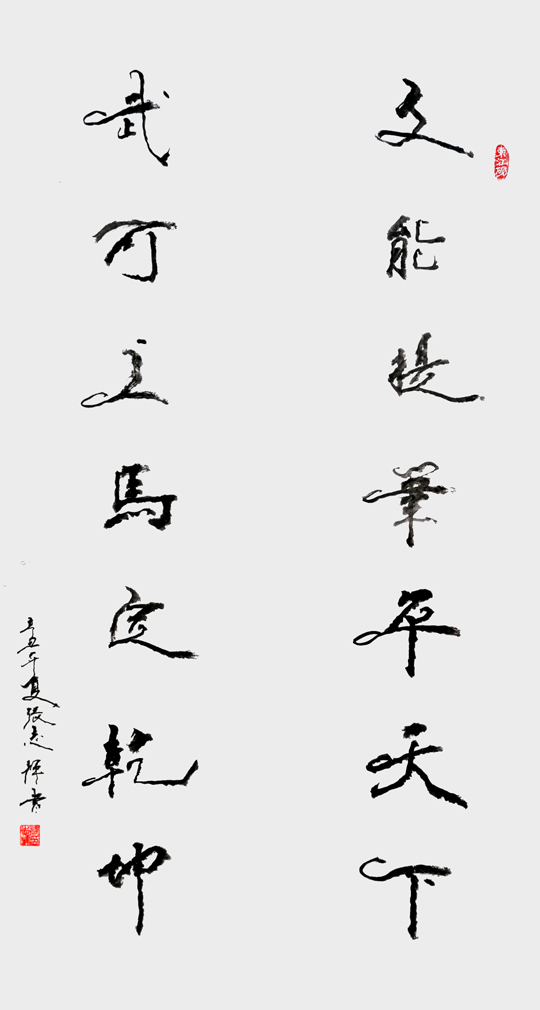 文能提筆平天下
武可立馬定乾坤
辛丑年夏張志輝書